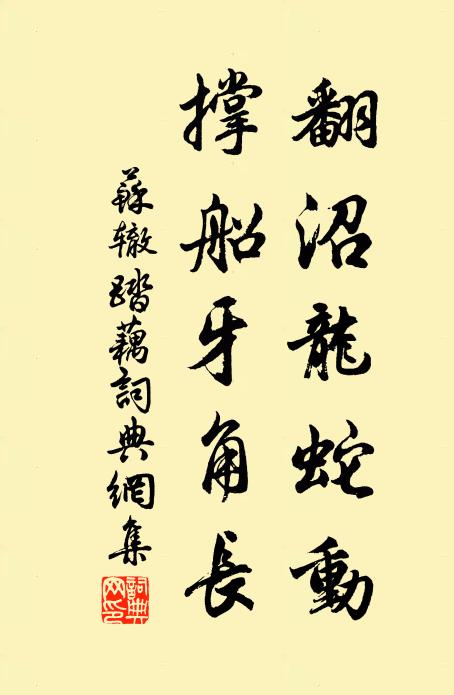 翻沼龍蛇動
撐船牙角長
蘇辙踏藕詞典網集
詞典網印